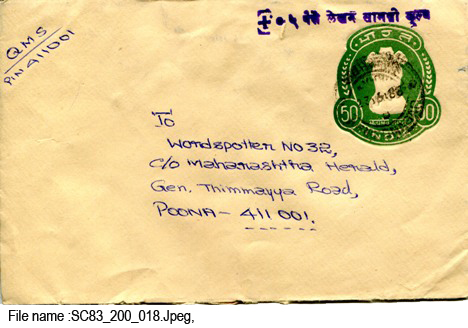 + ०५ पैसे लेखन सामग्री मूल्य
QMS
PIN 411001
भारत
50
INDIA
To
Wordspotter No 32,
C/o Maharashtra Herald,
Gen. Thimmayya Road,
POONA - 411 001.
File name :SC83_200_018.Jpeg,